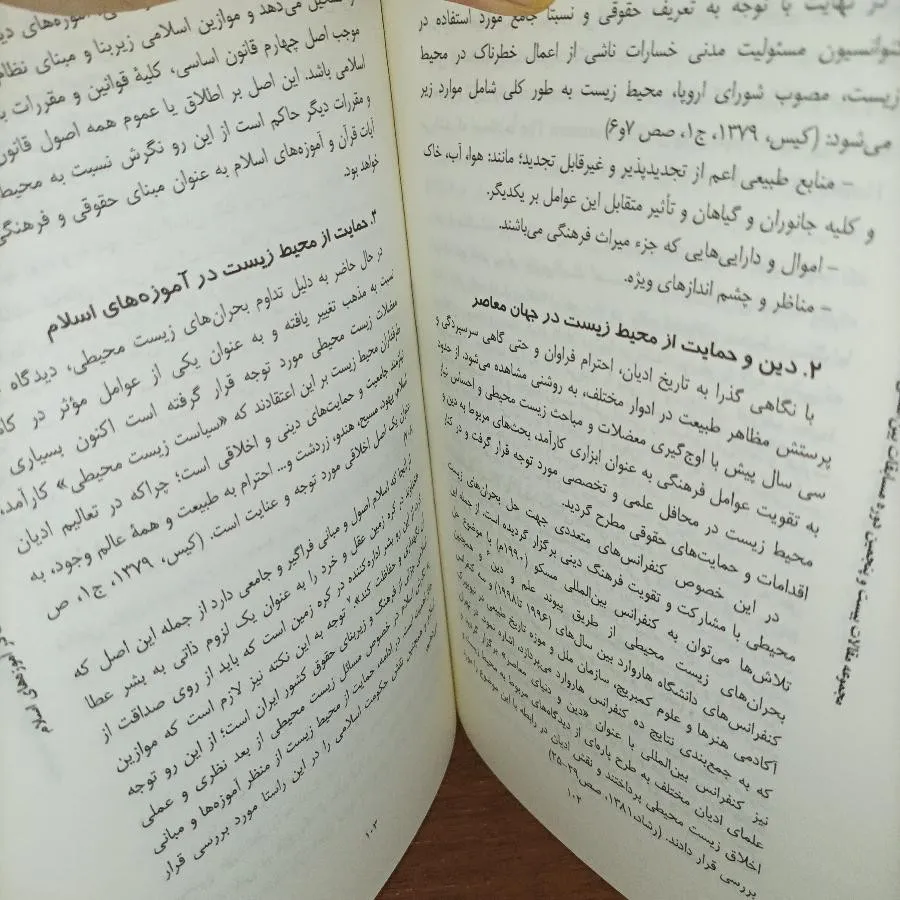 در نهایت با توجه به تعریف حقوقی و نسبتاً جامع مورد استفاده در
کنوانسیون مسئولیت مدنی خسارات ناشی از اعمال خطرناک در محیط
زیست، مصوب شورای اروپا، محیط زیست به طور کلی شامل موارد زیر
می‌شود: (کیس، ۱۳۷۹، ج۱، صص ۷و۶)
– منابع طبیعی اعم از تجدیدپذیر و غیرقابل تجدید؛ مانند: هوا، آب، خاک
و کلیه جانوران و گیاهان و تأثیر متقابل این عوامل بر یکدیگر.
– اموال و دارایی‌هایی که جزء میراث فرهنگی می‌باشند.
– مناظر و چشم اندازهای ویژه.
۲. دین و حمایت از محیط زیست در جهان معاصر
با نگاهی گذرا به تاریخ ادیان، احترام فراوان و حتی گاهی سرسپردگی و
پرستش مظاهر طبیعت در ادوار مختلف، به روشنی مشاهده می‌شود. از حدود
سی سال پیش با اوج‌گیری معضلات و مباحث زیست محیطی و احساس نیاز
به تقویت عوامل فرهنگی به عنوان ابزاری کارآمد، بحث‌های مربوط به دین و
محیط زیست در محافل علمی و تخصصی مورد توجه قرار گرفت و در کنار
اقدامات و حمایت‌های حقوقی مطرح گردید.
در این خصوص کنفرانس‌های متعددی جهت حل بحران‌های زیست
محیطی با مشارکت و تقویت فرهنگ دینی برگزار گردیده است. از جمله این
تلاش‌ها می‌توان به کنفرانس بین‌المللی مسکو (۱۹۹۰م) با موضوع حل
بحران‌های زیست محیطی از طریق پیوند علم و دین و همچنین
کنفرانس‌های دانشگاه هاروارد بین سال‌های (۱۹۹۶ تا ۱۹۹۸) و سه کنفرانس
آکادمی هنرها و علوم کمبریج، سازمان ملل و موزه تاریخ طبیعی در نیویورک
که به جمع‌بندی نتایج ده کنفرانس هاروارد می‌پردازد، اشاره نمود. در تهران
نیز کنفرانس بین‌المللی با عنوان «دین و دنیای معاصر» برگزار گردید و
علمای ادیان مختلف به طرح پاره‌ای از دیدگاه‌های مربوط به محیط زیست و
اخلاق زیست محیطی پرداختند و نقش ادیان در رابطه با این موضوع را مورد
بررسی قرار دادند. (رشاد، ۱۳۸۱، صص۳۹-۲۵)
۱۰۲
مجموعه مقالات بیست و پنجمین دوره مسابقات بین
تشکیل می‌دهد و موازین اسلامی زیربنا و مبنای نظام
موجب اصل چهارم قانون اساسی، کلیهٔ قوانین و مقررات
اسلامی باشد. این اصل بر اطلاق یا عموم همه اصول قانون
و مقررات دیگر حاکم است از این رو نگرش نسبت به محیط
آیات قرآن و آموزه‌های اسلام به عنوان مبنای حقوقی و فرهنگی
خواهد بود.
۳. حمایت از محیط زیست در آموزه‌های اسلام
در حال حاضر به دلیل تداوم بحران‌های زیست محیطی، دیدگاه
نسبت به مذهب تغییر یافته و به عنوان یکی از عوامل مؤثر در
معضلات زیست محیطی مورد توجه قرار گرفته است اکنون بسیاری
طرفداران محیط زیست بر این اعتقادند که «سیاست زیست محیطی» کارآمد،
نیازمند جامعیت و حمایت‌های دینی و اخلاقی است؛ چراکه در تعالیم ادیان
اسلام، یهود، مسیح، هندو، زردشت و... احترام به طبیعت و همهٔ عالم وجود، به
عنوان یک اصل اخلاقی مورد توجه و عنایت است. (کیس، ۱۳۷۹، ج۱، ص
از آنجا که اسلام اصول و مبانی فراگیر و جامعی دارد از جمله این اصل که
در کره زمین عقل و خرد را به عنوان یک لزوم ذاتی به بشر عطا
از این رو بشر اداره‌کننده در کره زمین است که باید از روی صداقت از
نگهداری و حفاظت کند»، توجه به این نکته نیز لازم است که موازین
اسلامی جزئی از فرهنگ و زیربنای حقوق کشور ایران است؛ از این رو توجه
اسلام در خصوص مسائل زیست محیطی از بعد نظری و عملی
در ادامه، حمایت از محیط زیست از منظر آموزه‌ها و مبانی
نقش حکومت اسلامی را در این راستا مورد بررسی قرار
۱۰۳
آموزه‌های اسلام